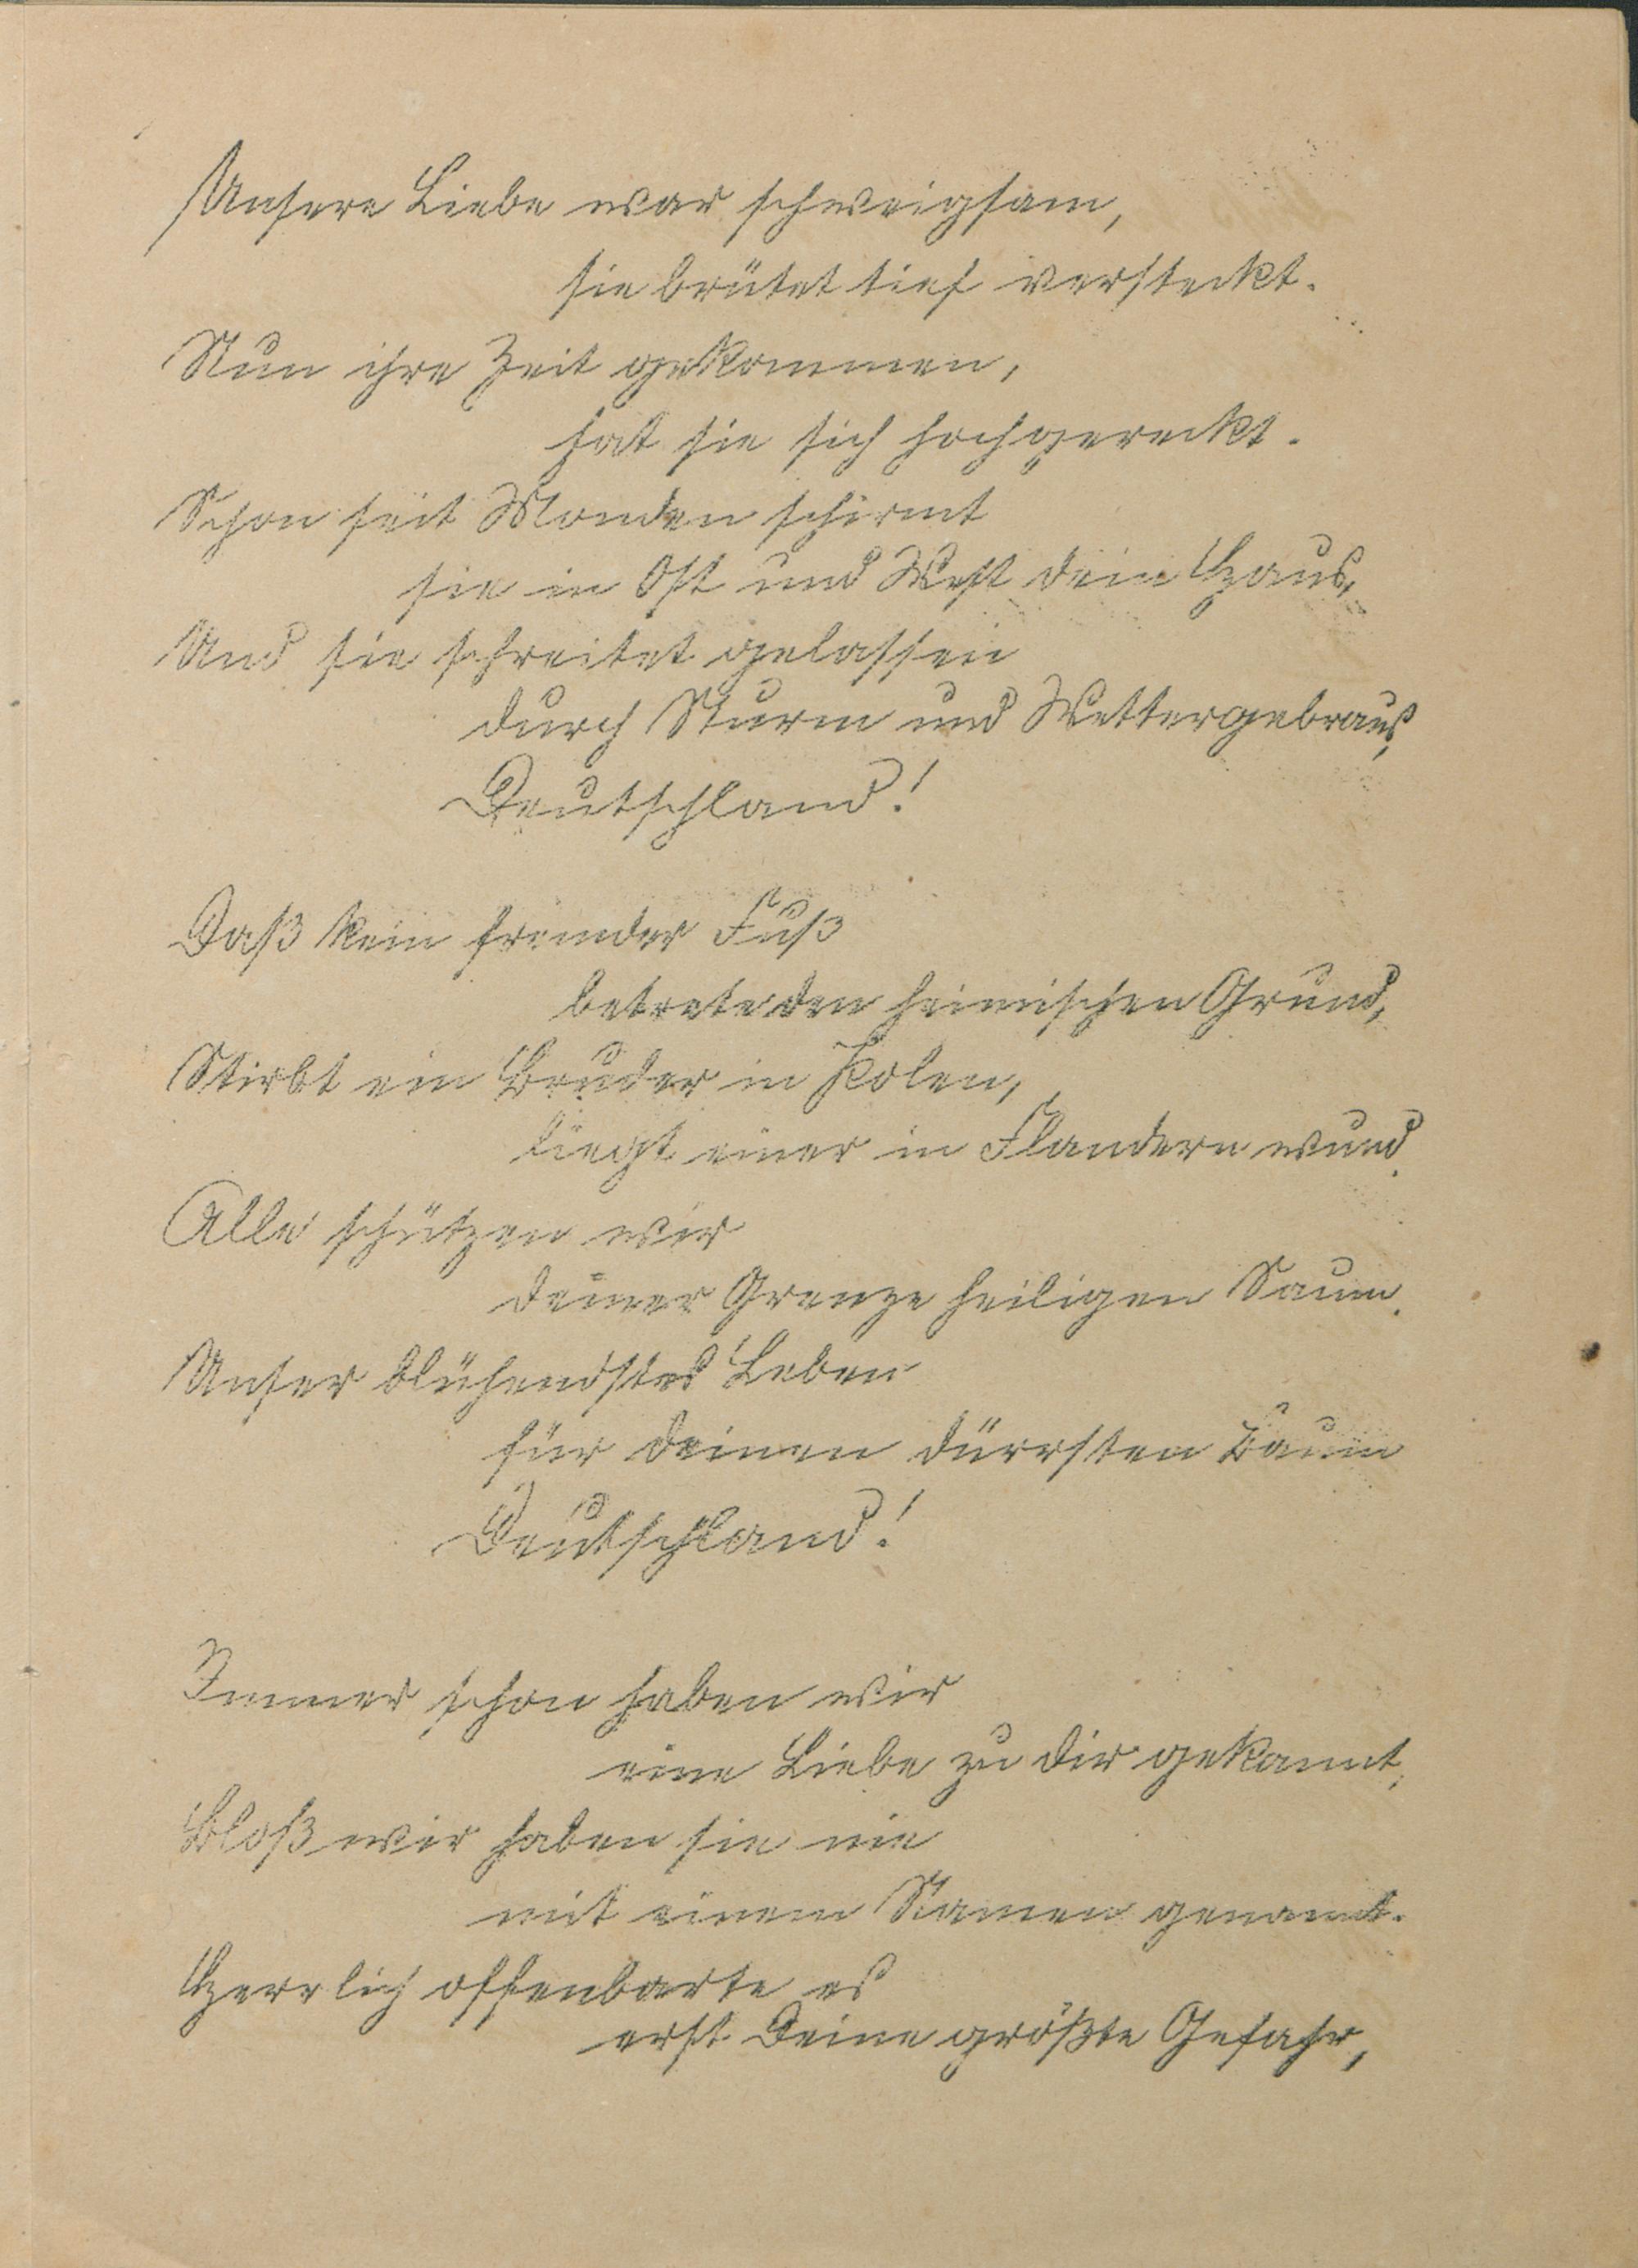 Unsere Liebe war schweigsam,
sie brütet tief versteckt.
Nun ihre Zeit gekommen,
hat sie sich hochgereckt.
Schon seit Monden schirmt
sie in Ost und West dein Haus,
Und sie schreitet gelassen
durch Sturm und Wettergebraus,
Deutschland!
Daß kein fremder Fuß
betrete den heimischen Grund,
Stirbt ein Bruder in Polen,
liegt einer in Flandern wund.
Alle schützen wir
deiner Grenze heiligen Saum.
Unser blühendstes Leben
für deinen dürrsten Baum
Deutschland!
Immer schon haben wir
eine Liebe zu dir gekannt,
Bloß wir haben sie nie
mit einem Namen genannt.
Herrlich offenbarte es
erst Deine größte Gefahr,